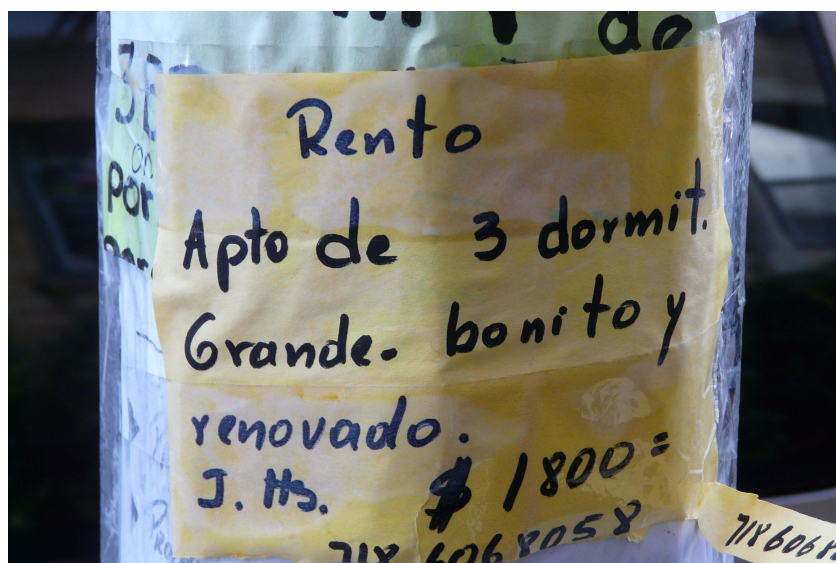 do
3E
por
Rento
Apto de 3 dormit.
Grande. bonito y
renovado.
J. Hs. $ 1800=
718 6068058
718 6068